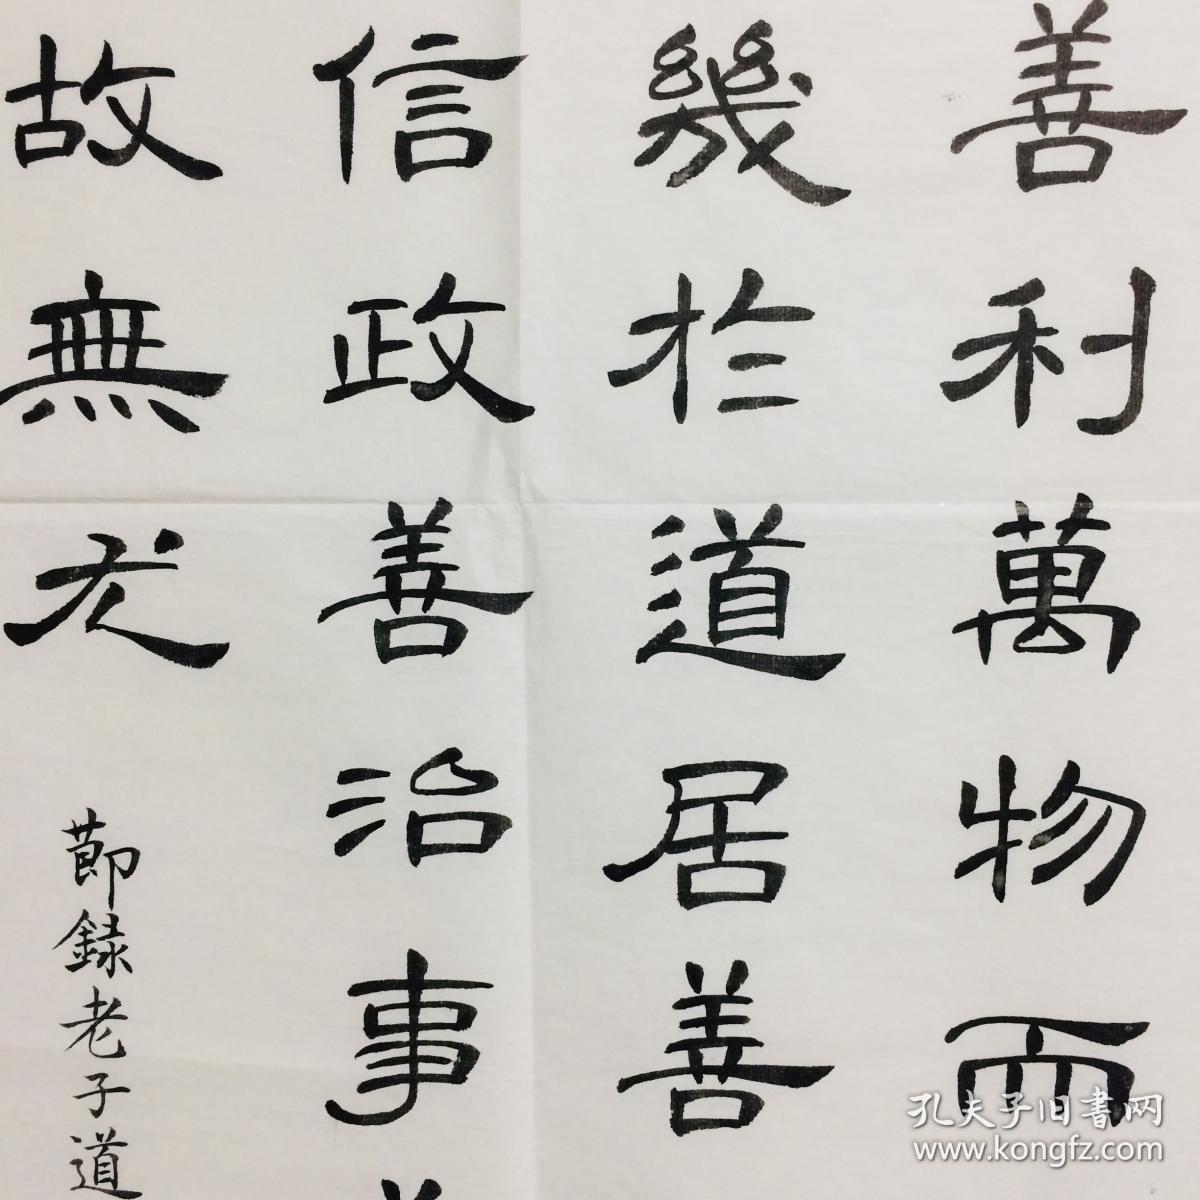 善利萬物而
幾於道居善
信政善治事
故無尤
節錄老子道
孔夫子旧書网
www.kongfz.com